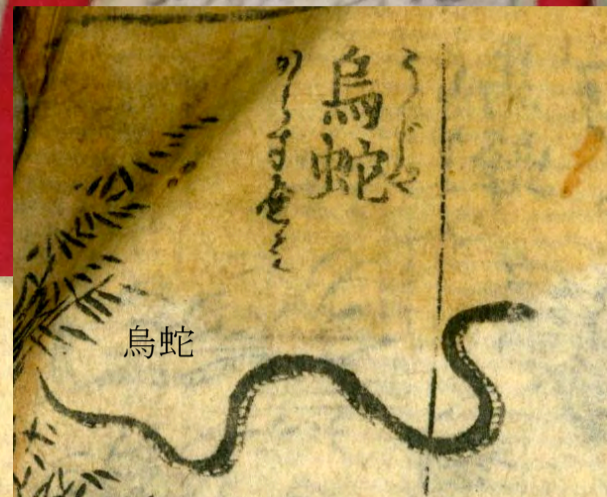 うじや
烏蛇
からすへみ
烏蛇